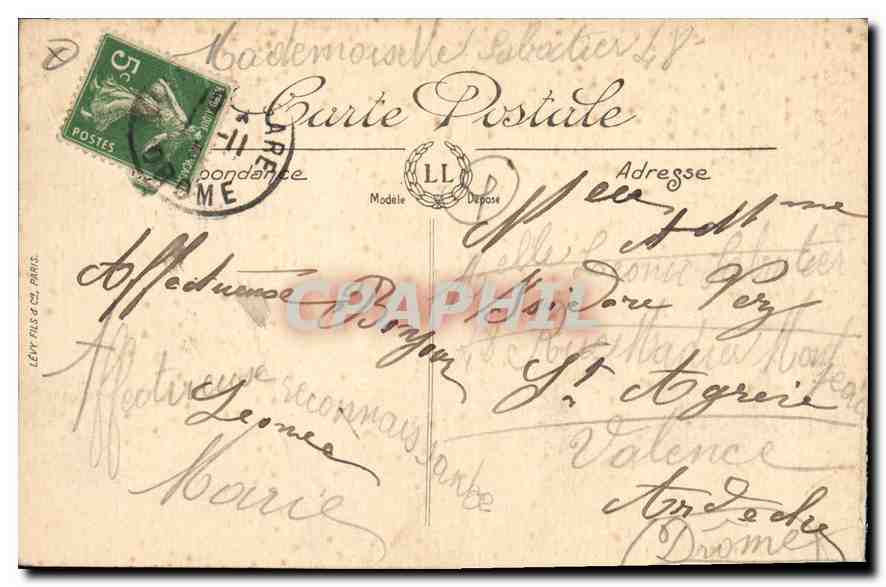 Mademoiselle Sabatier
5c
POSTES
ARE
DROME
-11
Carte Postale
Correspondance
Adresse
LL
Modèle Déposé
LÉVY FILS & Cie, PARIS.
CPAPHIL
Affectueuse Bonjour
Leonce
Affectueuse reconnaissante
Marie
Melle et Mme
Isidore Perz
St Agrève
Ardèche
Melle Leonie Sabatier
Rue Madier Montjeau
Valence
(Drôme)